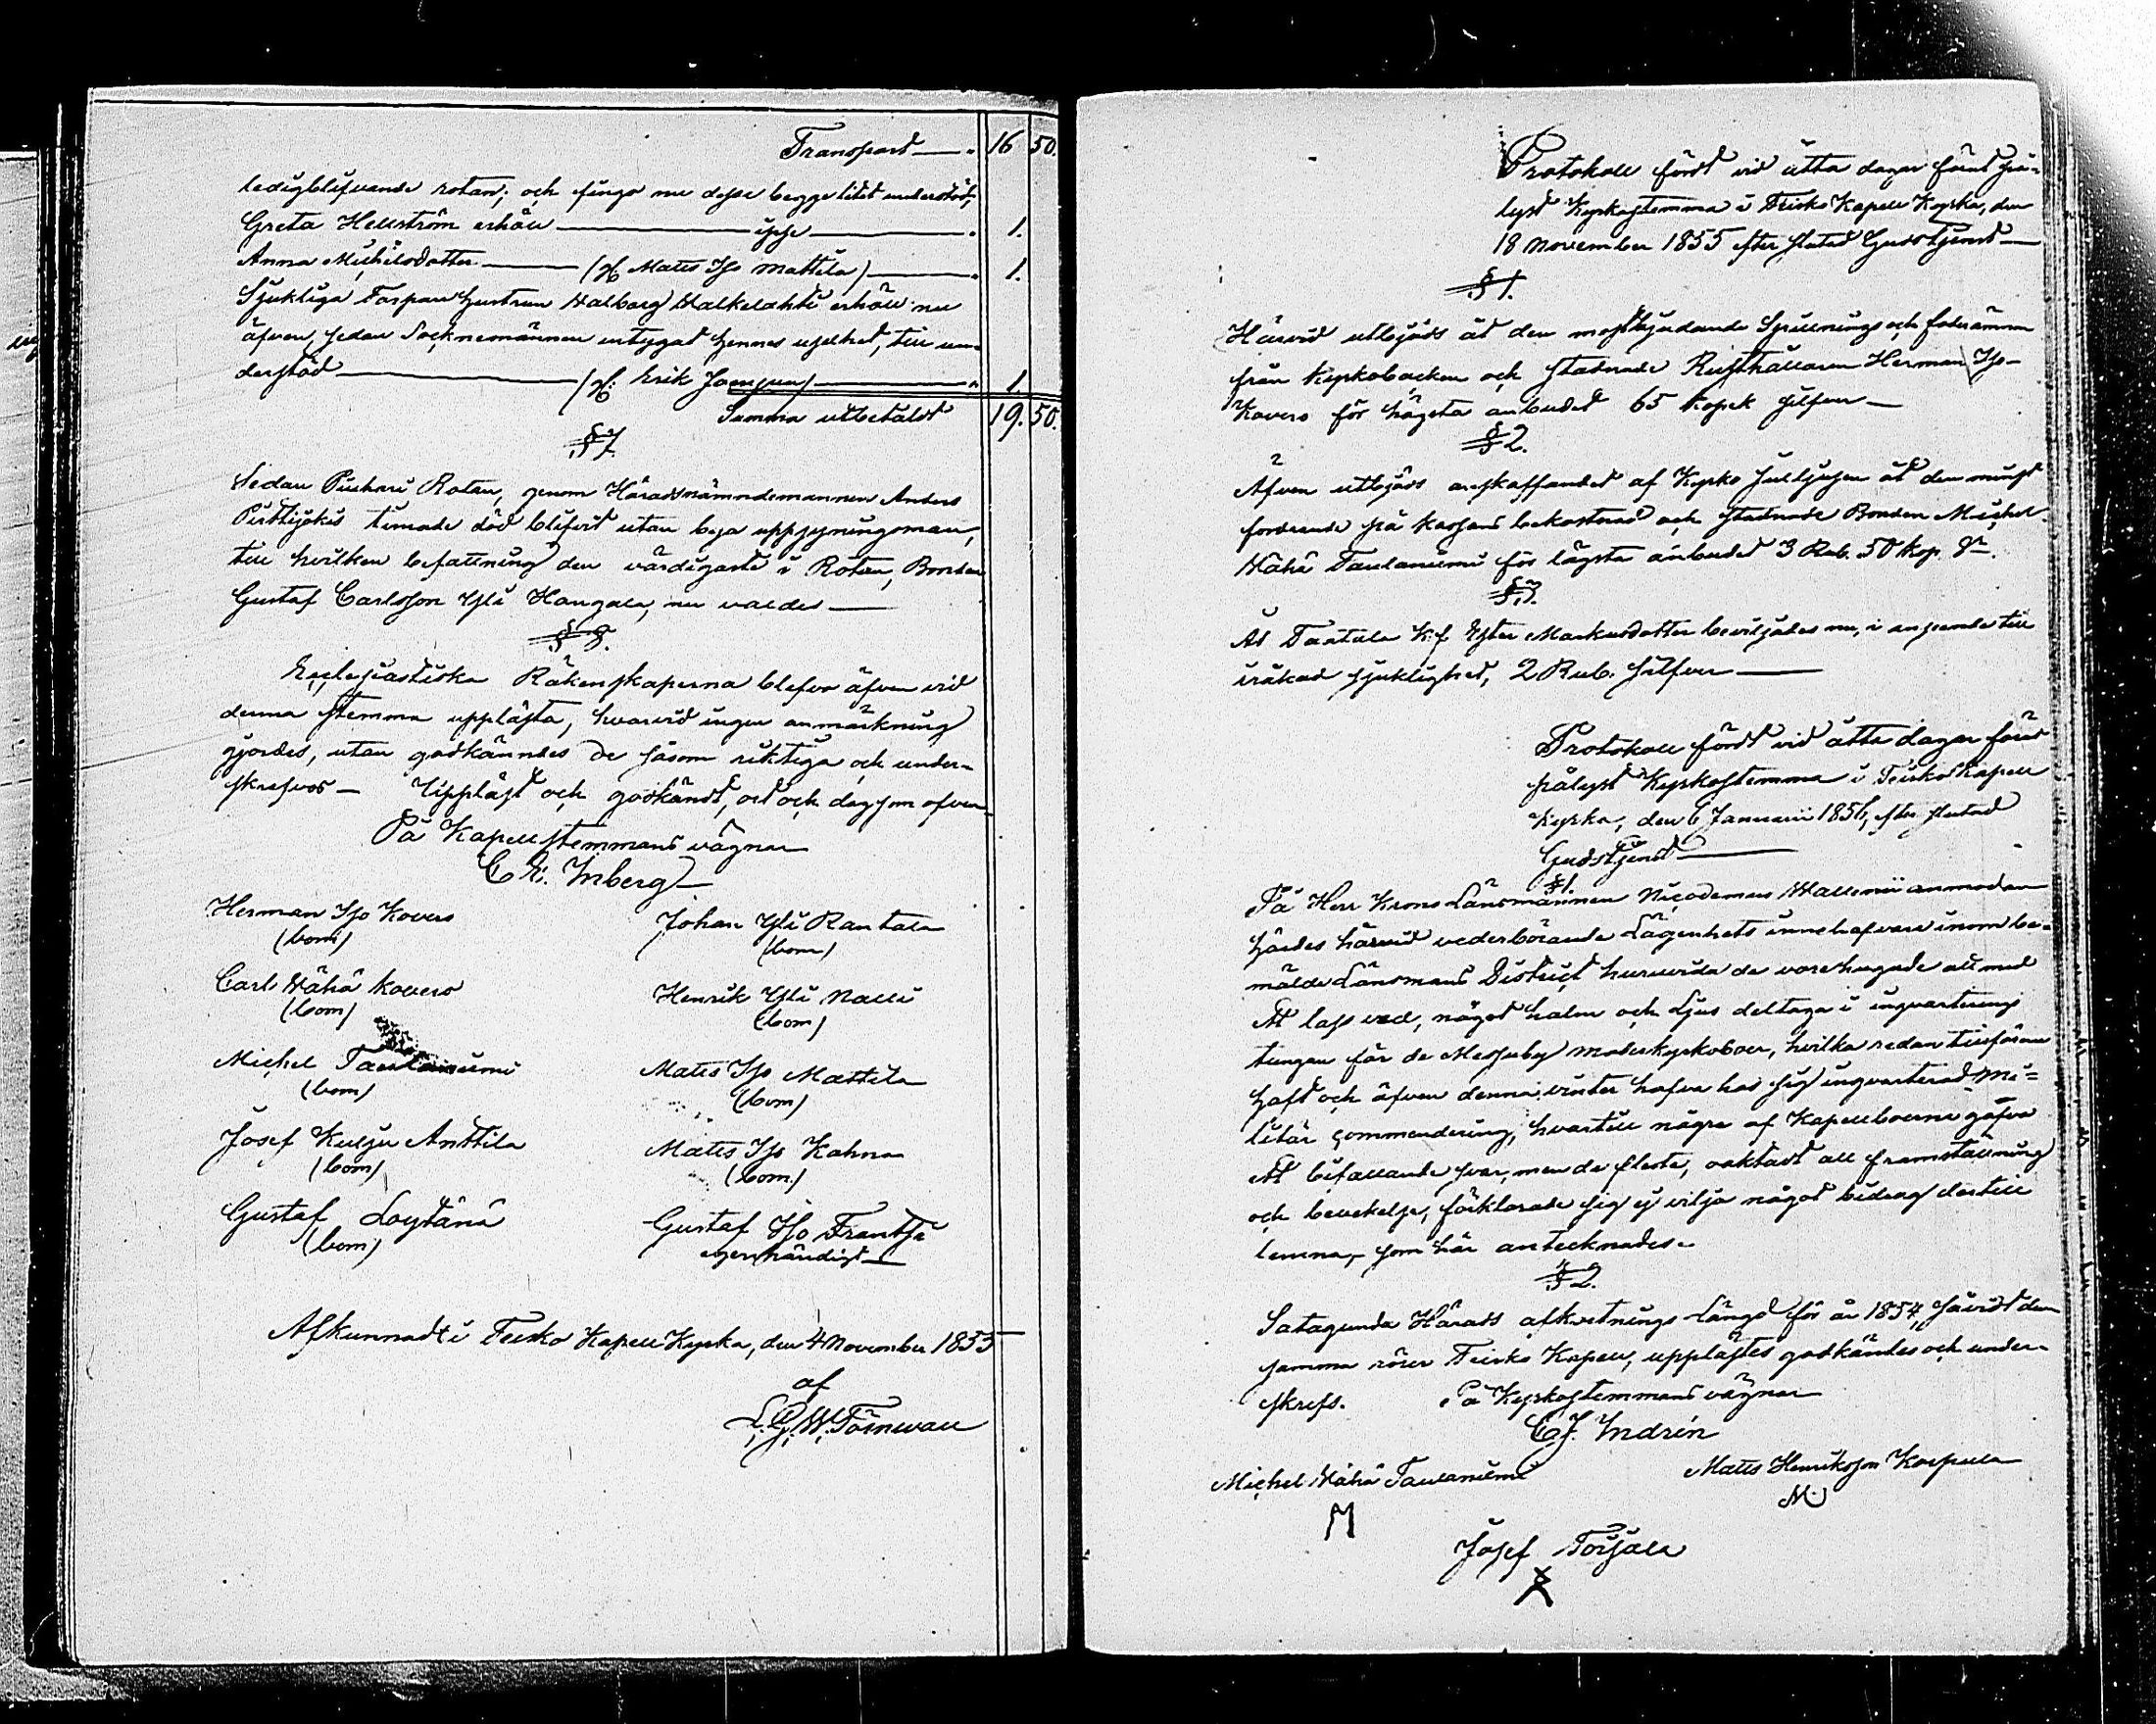 Transport — 16 50.
ledigblifvande rotan; och fingo nu desse begge litet understöd,
Greta Hellström erhöll — — 1.
Anna Michelsdotter — (qf. Matts Iso Mattila) — 1.
Sjukliga Torparhustrun Walborg Walkelahti erhöll nu
äfven, sedan Socknemännen intygat hennes uselhet, till un-
derstöd — (qf: Erik ) — 1.
Summa utbetaldt 19. 50.
§ 7.
Sedan Puuhari Rotan, genom Häradsnämndemannen Anders
Perttijokis timade död blifvit utan laga uppsyningsman,
till hvilken befattning den värdigaste i Rotan, Bonden
Gustaf Carlsson Yli Hangala, nu valdes —
§ 8.
Ecclesiastiska Räkenskaperna blefvo äfven vid
denna stemma upplästa, hvarvid ingen anmärkning
gjordes, utan godkändes de såsom riktiga och under-
skrefvos — Uppläst och godkändt, ort och dag som ofvan
På Kapellstemmans vägnar
C. E. Inberg
Herman Iso Kovero Johan Yli Rantala
(bom) (bom)
Carl Wähä Kovero Henrik Yli Nalli
(bom) (bom)
Michel Taulaniemi Matts Iso Mattila
(bom) (bom)
Josef Kulju Anttila Matts Iso Kahna
(bom) (bom.)
Gustaf Löytänä Gustaf Iso Frantsi
(bom) egenhändigt
Afkunnadt i Teisko Kapell Kyrka, den 4 November 1855
af
L. G. W. Törnwall
Protokoll fördt vid åtta dagar förut på-
lyst Kyrkostemma i Teisko Kapell Kyrka, den
18 November 1855 efter slutad Gudstjenst —
§ 1.
Härvid utbjöds åt den mestbjudande Spillnings och foderämnen
från Kyrkobacken och stadnade Rusthållaren Herman Iso-
Kovero för högsta anbudet 65 Kopek silfver —
§ 2.
Äfven utbjöds anskaffandet af Kyrko Julljusen åt den minst
fordrande på kassans bekostnad och stadnade Bonden Michel
Wähä Taulaniemi för lägsta anbudet 3 Rub. 50 Kop. Sr.
§ 3.
Åt Taatala K.f. Ester Markusdotter beviljades nu, i anseende till
iråkad sjuklighet, 2 Rub. silfver —
Protokoll fördt vid åtta dagar förut
pålyst Kyrkostemma i Teisko Kapell
Kyrka, den 6 Januarii 1856, efter slutad
Gudstjenst —
§ 1.
På Herr Krono Länsmannen Nicodemus Wallenii anmodan
hördes härvid vederbörande Lägenhets innehafvare inom be-
mälde Länsmans District huruvida de vore hugade att med
ett lass ved, något halm och Ljus deltaga i inqvarterings
tungan för de Messuby moderkyrkoboer, hvilka redan tillförene
haft och äfven denna vinter hafva hos sig inqvarterad Mi-
litär commendering, hvartill några af Kapellboerne gåfvo
ett bifallande svar, men de fleste, oaktadt all framställning
och bevekelse, förklarade sig ej vilja något bidrag dertill
lemna, som här antecknades.
§ 2.
Satagunda Härads afkortnings Längd för år 1854, såvidt den
samma rörer Teisko Kapell, upplästes godkändes och under-
skrefs. På Kyrkostemmans vägnar
C. J. Indrén
Michel Wähä Taulaniemi Matts Henriksson Korpula
M M
Josef Poijala